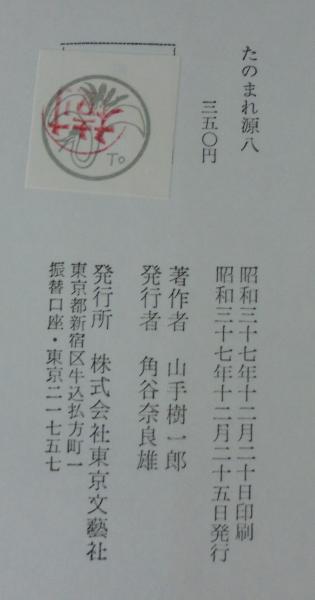 たのまれ源八
三五〇円
昭和三十七年十二月二十日印刷
昭和三十七年十二月二十五日発行
著作者 山手樹一郎
発行者 角谷奈良雄
発行所 株式会社東京文藝社
東京都新宿区牛込払方町一
振替口座・東京二一七五七
To